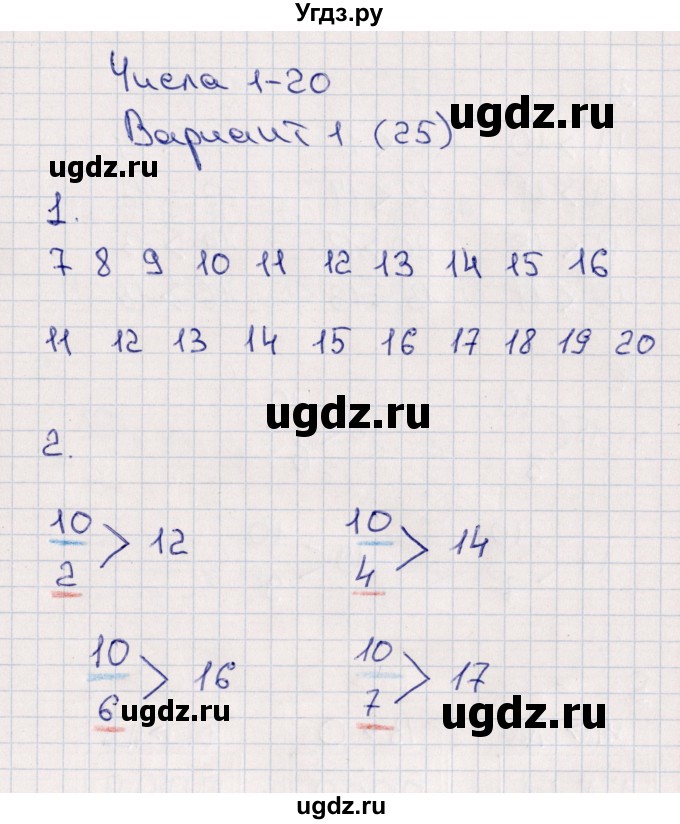 Угдз.ру
Числа 1-20
Вариант 1 (25)
ugdz.ru
ugdz.ru
1.
7 8 9 10 11 12 13 14 15 16
11 12 13 14 15 16 17 18 19 20
ugdz.ru
2.
10 > 12
2
10 > 14
4
10 > 16
6
10 > 17
7
ugdz.ru
ugdz.ru
ugdz.ru